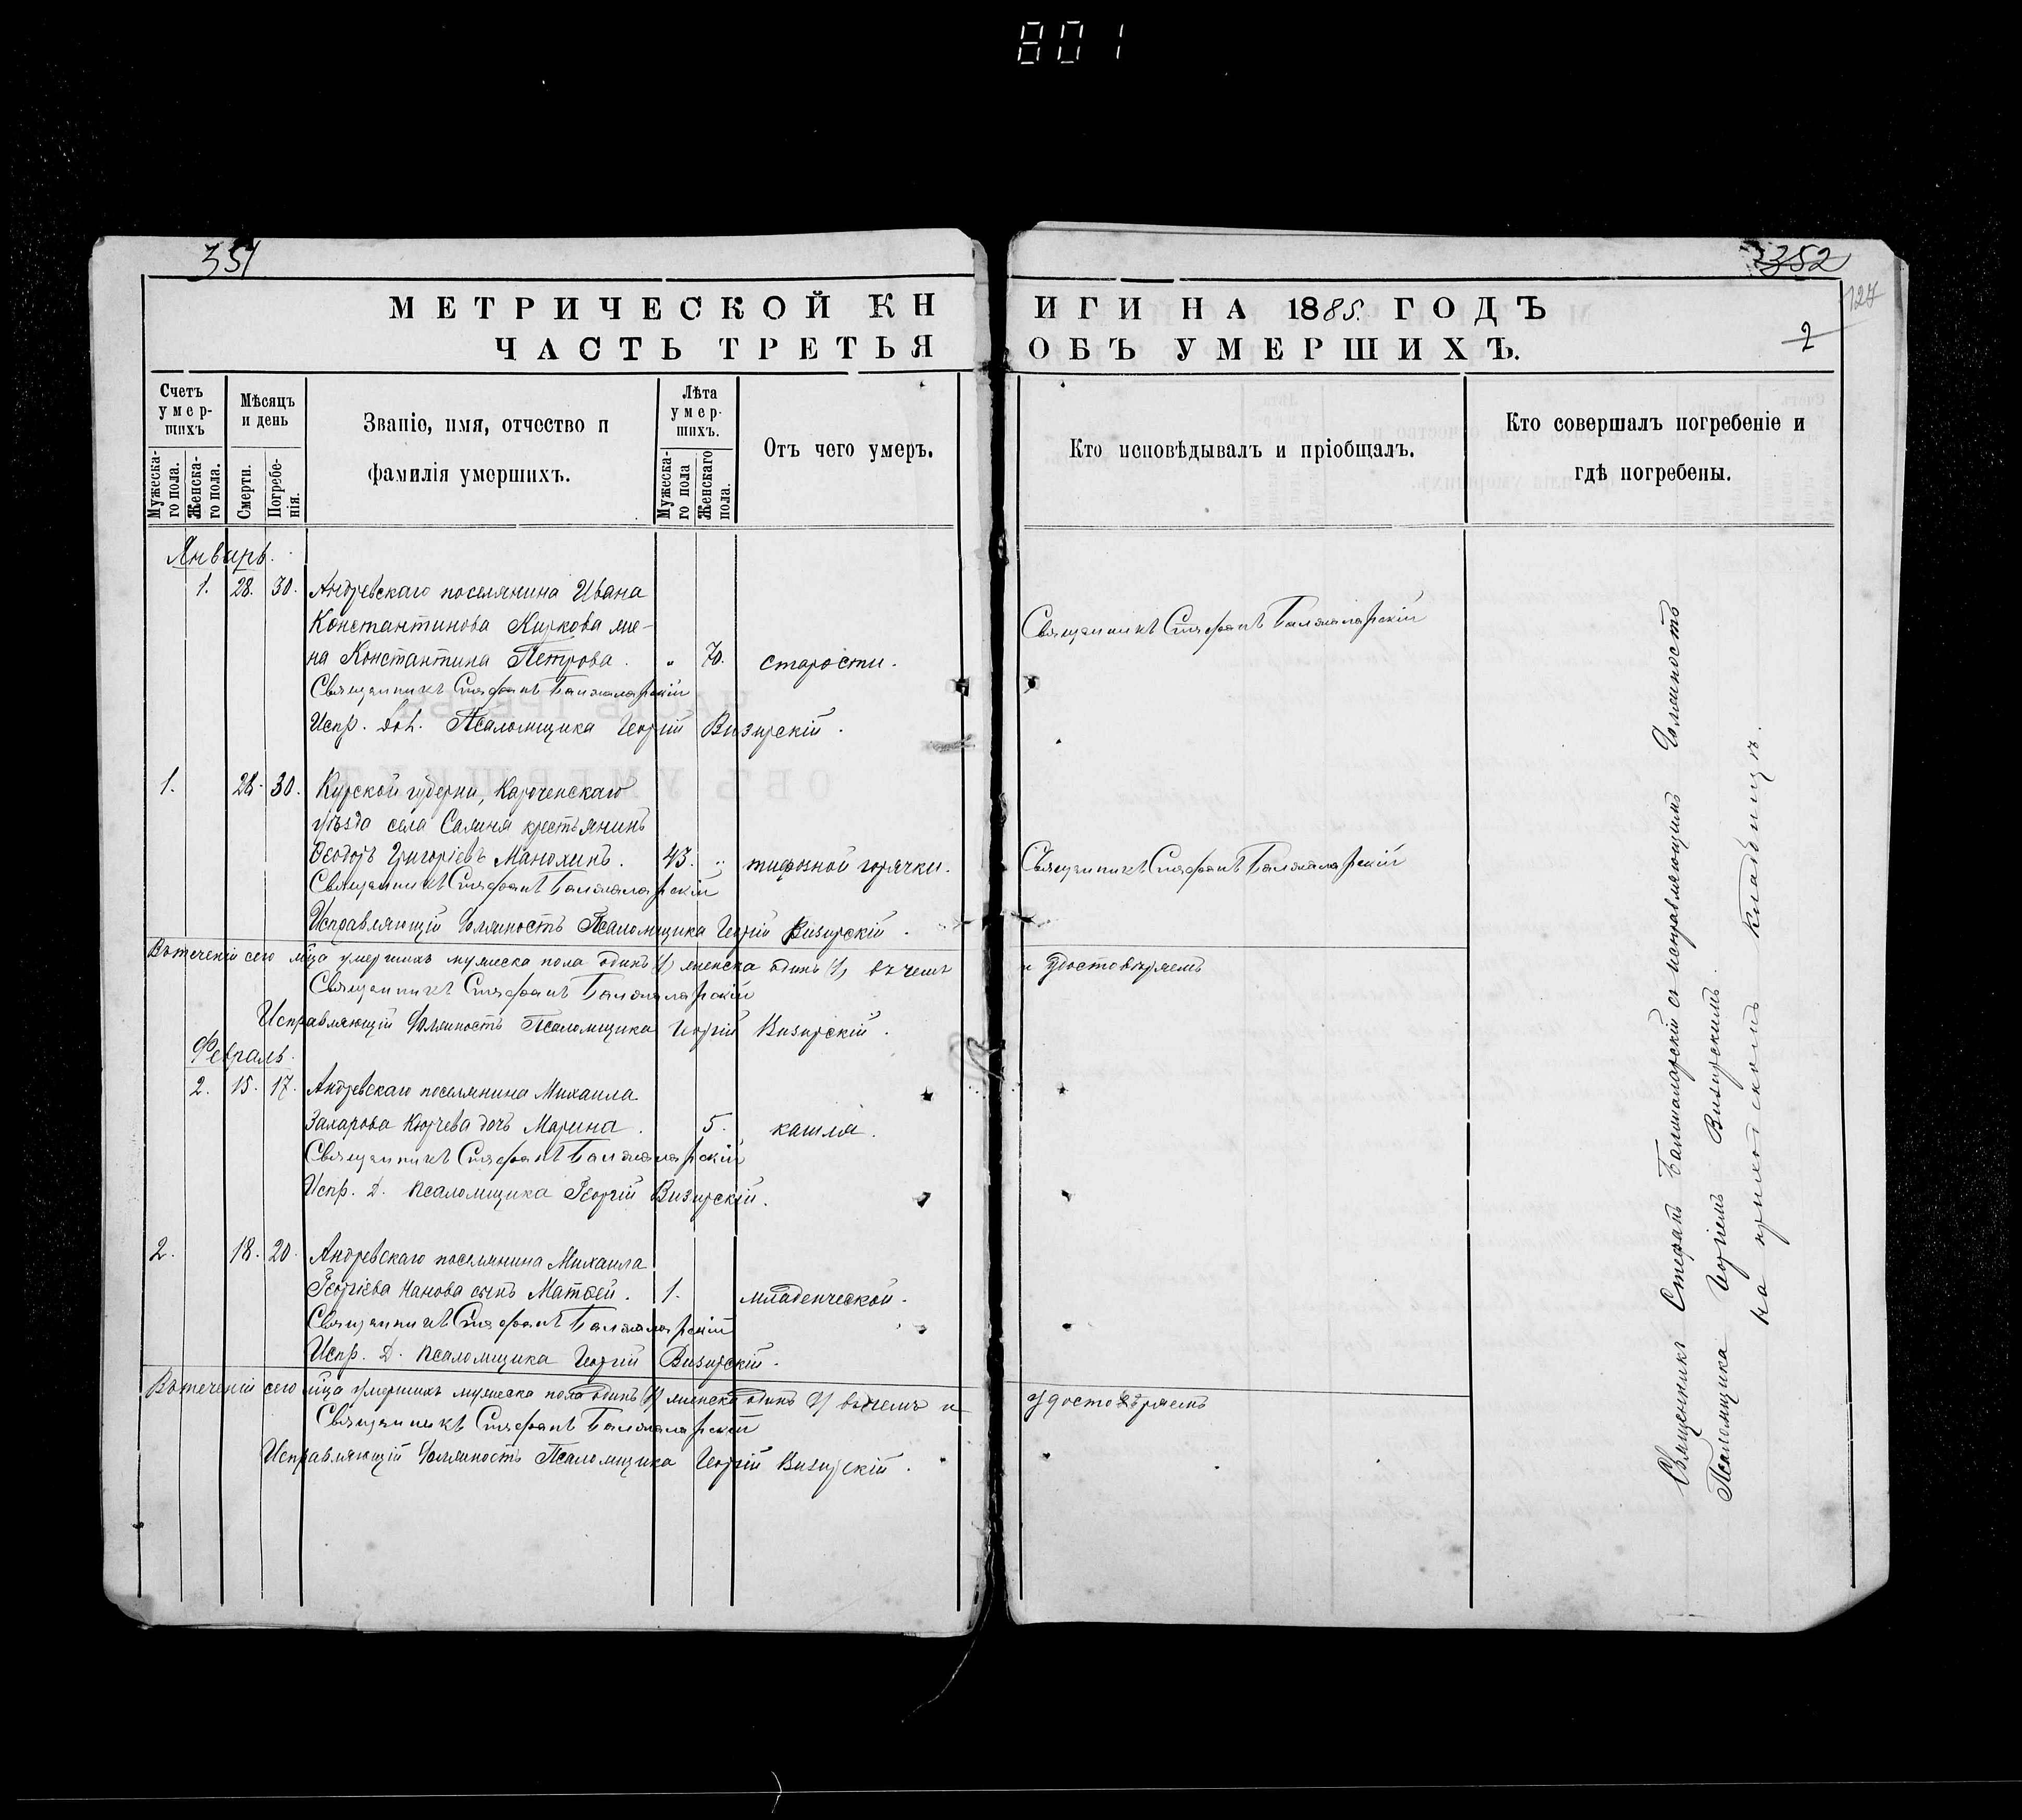 801
351
352
127
2
МЕТРИЧЕСКОЙ КН
ИГИ НА 1885. ГОДЪ
ЧАСТЬ ТРЕТЬЯ
ОБЪ УМЕРШИХЪ.
Счетъ умер-шихъ
Мѣсяцъ и день
Званіе, имя, отчество и
фамилія умершихъ.
Лѣта умер-шихъ.
Отъ чего умеръ.
Кто исповѣдывалъ и пріобщалъ.
Кто совершалъ погребеніе и
гдѣ погребены.
Мужеска-го пола.
Женска-го пола.
Смерти.
Погребе-нія.
Мужеска-го пола
Женскаго пола.
Январь.
1. 28. 30. Андревскаго поселянина Ивана
Константинова Киркова же-
на Константина Петрова. " 70. старости.
Священникъ Стефанъ Балжаларскій
Священникъ Стефанъ Балжаларскій
Испр. дол. Псаломщика Георгій Визирскій.
1. 28. 30. Курской губерни, Короченскаго
уѣзда села крестьянинъ
Ѳеодоръ Григоріевъ Манохинъ. 43. " тифозной горячки.
Священникъ Стефанъ Балжаларскій
Священникъ Стефанъ Балжаларскій
Исправляющій должность Псаломщика Георгій Визирскій.
Въ теченіи сего мца умершихъ мужеска пола одинъ (1) женска одинъ (1) въ чемъ
и удостовѣряемъ
Священникъ Стефанъ Балжаларскій
Исправляющій должность Псаломщика Георгій Визирскій.
Февраль.
2. 15. 17. Андревскаго поселянина Михаила
Захарова Кюрчева дочь Марина. 5. кашля.
Священникъ Стефанъ Балжаларскій
Испр. Д. Псаломщика Георгій Визирскій.
2. 18. 20. Андревскаго поселянина Михаила
Георгіева Нанова сынъ Матѳей. 1. младенческой.
Священникъ Стефанъ Балжаларскій
Испр. Д. Псаломщика Георгій Визирскій.
Въ теченіи сего мца умершихъ мужеска пола одинъ (1) женска одинъ (1) въ чемъ и
удостовѣряемъ
Священникъ Стефанъ Балжаларскій
Исправляющій должность Псаломщика Георгій Визирскій.
Священникъ Стефанъ Балжаларскій съ исправляющимъ должность
Псаломщика Георгіемъ Визирскимъ.
на приходскомъ кладбищѣ.